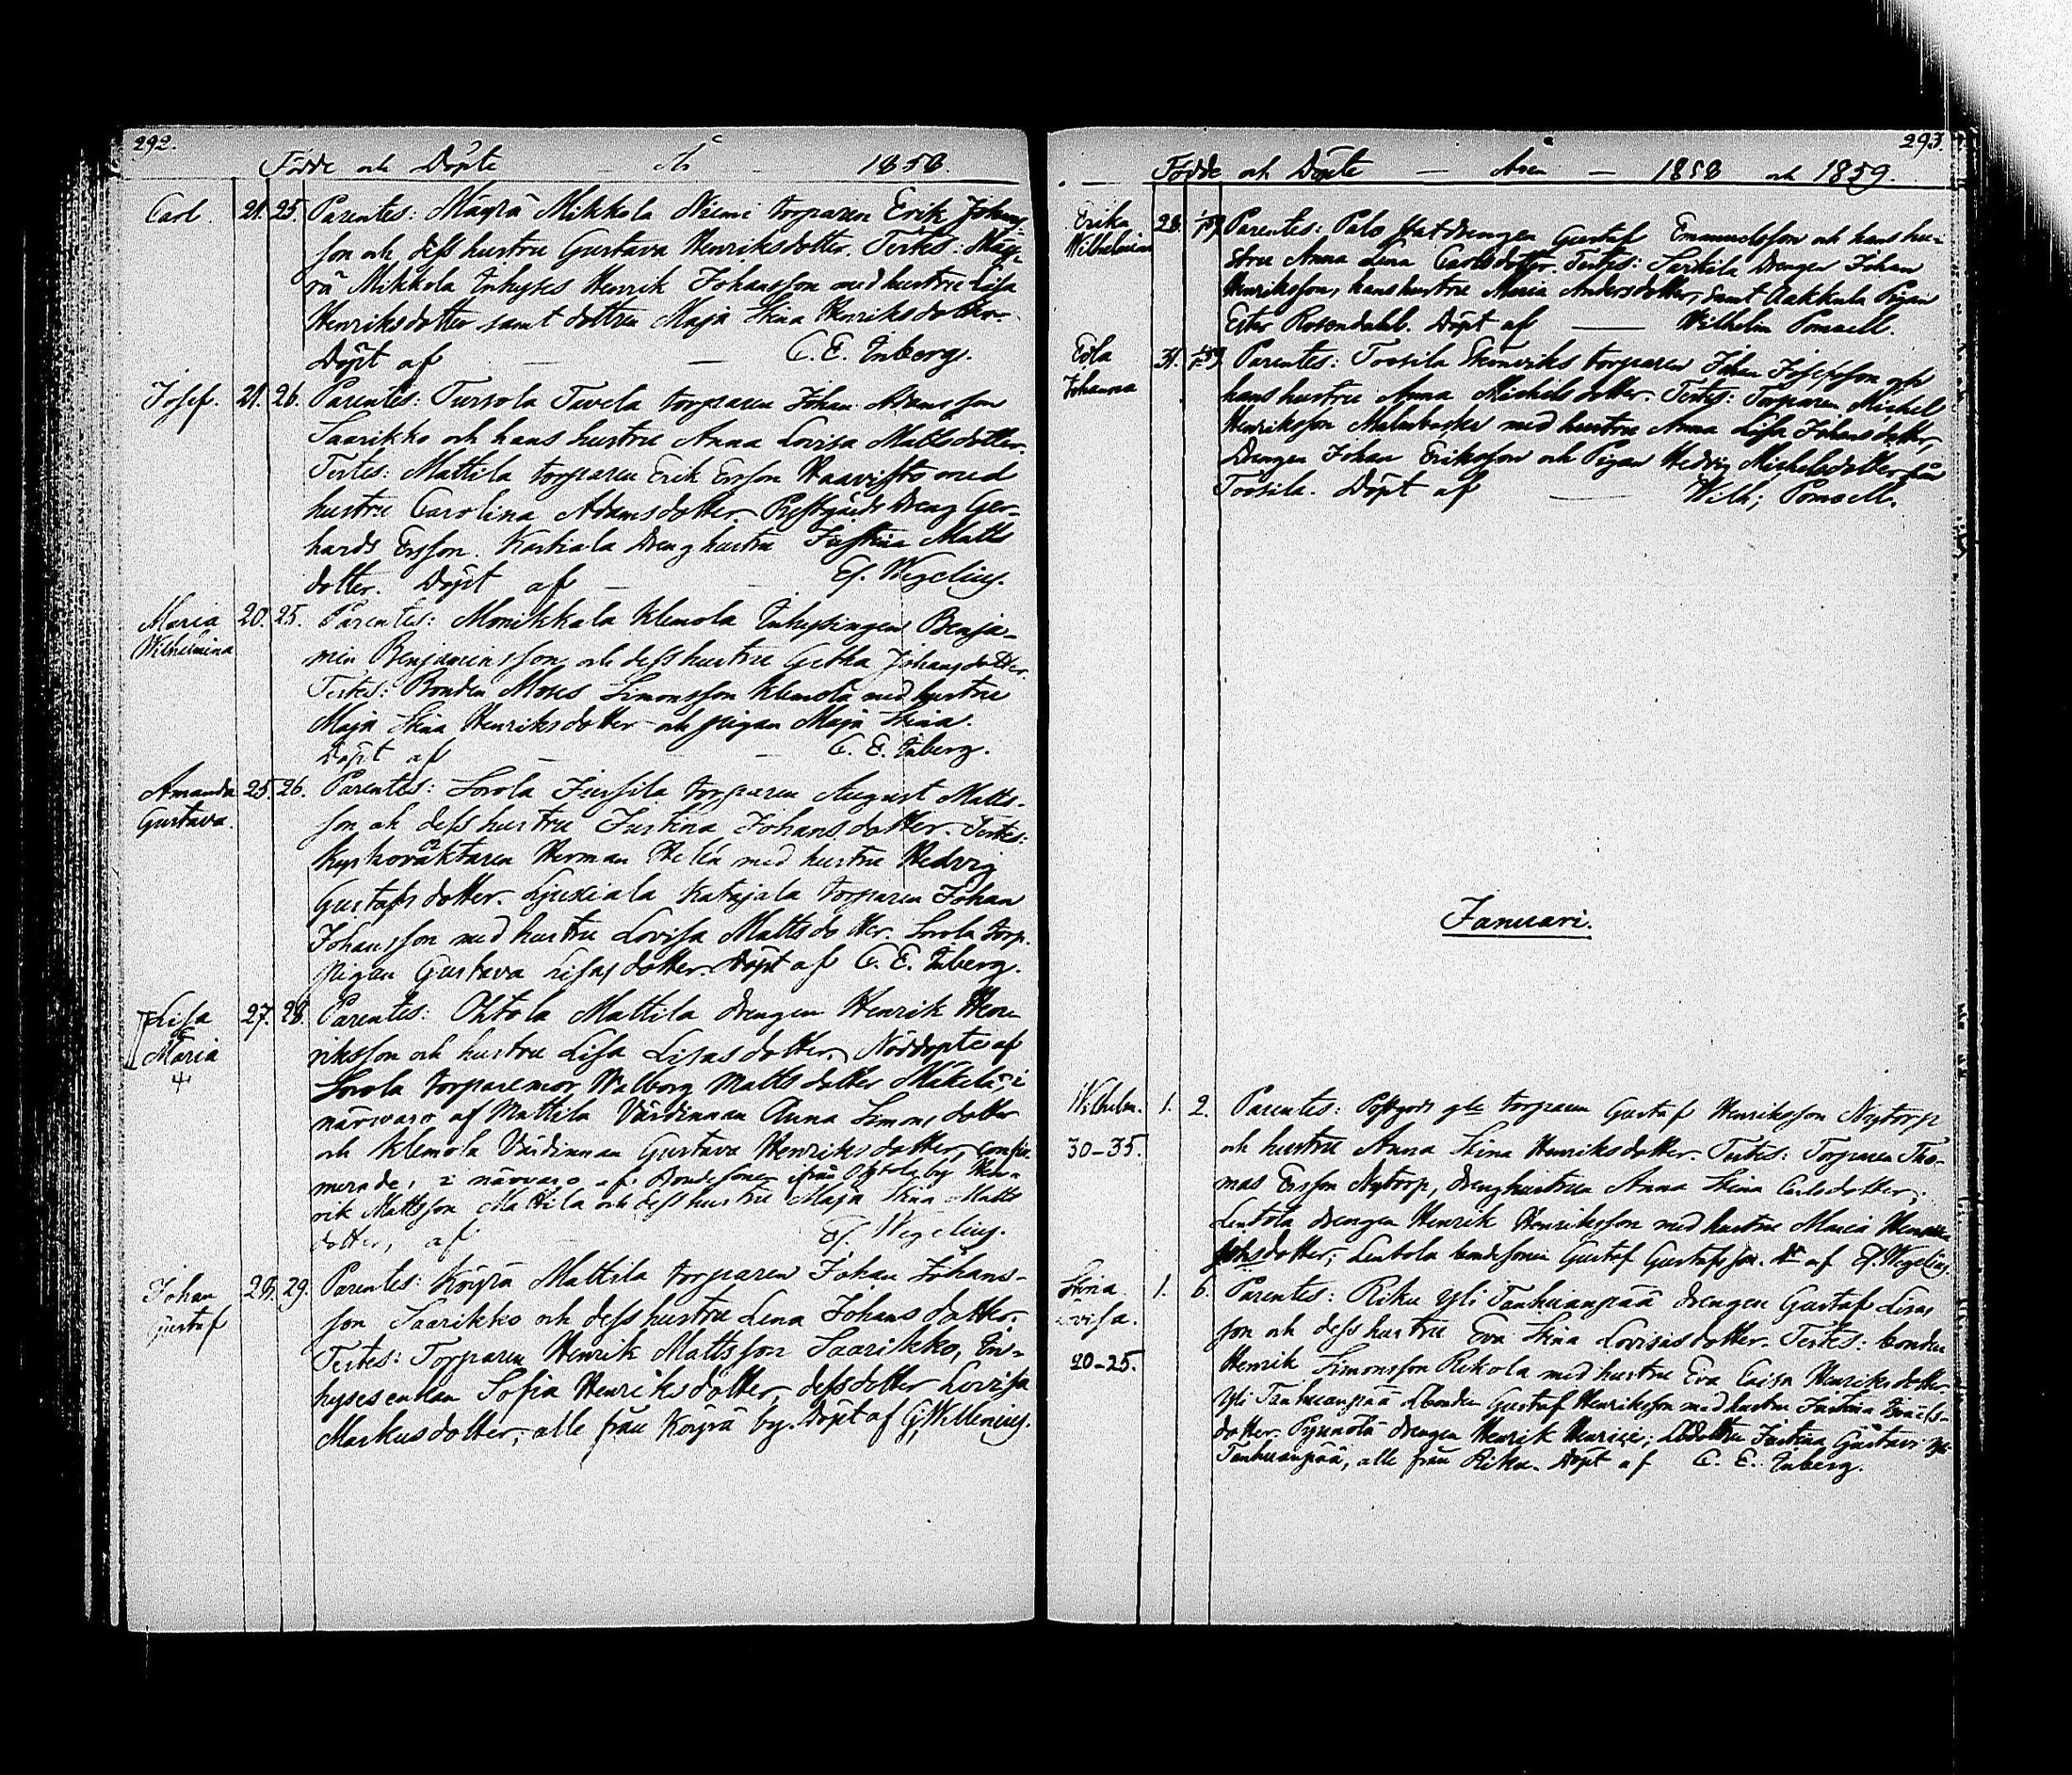 292.
Födde och Döpte År 1858.
Carl. 21. 25. Parentes: Mäyrä Mikkola Niemi torparen Erik Johans-
son och dess hustru Gustava Henriksdotter. Testes: Mäy-
rä Mikkola Inhyses Henrik Johansson med hustru Lisa
Henriksdotter samt dottren Maja Stina Henriksdotter.
Döpt af — — C. E. Inberg.
Josef. 21. 26. Parentes: Tursola Tuvela torparen Johan Adamsson
Saarikko och hans hustru Anna Lovisa Mattsdotter.
Testes: Mattila torparen Erik Ersson Haavisto med
hustru Carolina Adamsdotter. Prestgårds Dreng Ger-
hards Ersson. Karhiala Dreng hustru Justina Matts
dotter. Döpt af — — Ef. Wegelius.
Maria 20. 25. Parentes: Monikkala Klemola Inhysingen Benja-
Wilhelmina
min Benjaminsson och dess hustru Gretha Johansdotter.
Testes: Bonden Moses Simonsson Klemola med hustru
Maja Stina Henriksdotter och pigan Maja Stina.
Döpt af — — C. E. Inberg.
Amanda 25. 26. Parentes: Sorola Jussila torparen August Matts-
Gustava.
son och dess hustru Justina Johansdotter. Testes:
Kyrkovaktaren Herman Helén med hustru Hedvig
Gustafsdotter. Ljuxiala Katajala torparen Johan
Johansson med hustru Lovisa Mattsdotter. Sorola torp.
pigan Gustava Lisasdotter. Döpt af C. E. Inberg.
Lisa 27. 28. Parentes: Ohtola Mattila drengen Henrik Hen-
&
Maria
riksson och hustru Lisa Lisasdotter. Nöddöpte af
Sorola torparemor Walborg Mattsdotter Mäkelä, i
närwaro af Mattila Värdinnan Anna Simonsdotter
och Klemola Värdinnan Gustava Henriksdotter, confir-
merade, i närvaro af Bondesonen ifrån Ohtola by Hen-
rik Mattsson Mattila och dess hustru Maja Stina Matts
dotter, af — Ef. Wegelius.
Johan 28. 29. Parentes: Köyrä Mattila torparen Johan Johans-
Gustaf
son Saarikko och dess hustru Lena Johansdotter.
Testes: Torparen Henrik Mattsson Saarikko, In-
hysesenkan Sofia Henriksdotter, dess dotter Lovisa
Markusdotter, alle från Köyrä by. Döpt af Gj. Willenius.
293.
Födde och Döpte — Åren — 1858 och 1859.
Erika 28. Parentes: Palo Statdrengen Gustaf Emanuelsson och hans hu-
Wilhelmina
stru Anna Lena Carlsdotter. Testes: Drengen Johan
Henriksson, hans hustru Maria Andersdotter, samt Aakkula Pigan
Ester Rosendahl. Döpt af — Wilhelm Pomoell.
Edla 31. Parentes: Toosila torparen Johan Josefsson och
Johanna
hans hustru Anna Michelsdotter. Testes: Torparen Michel
Henriksson Malmbacka med hustru Anna Lisa Johansdotter,
Drengen Johan Eriksson och Pigan Hedvig Michelsdotter från
Toosila. Döpt af — Wilh; Pomoell.
Januari.
Wilhelm. 1. 2. Parentes: torparen Gustaf Henriksson Nytorp
30–35.
och hustru Anna Stina Henriksdotter. Testes: Torparen Tho-
mas Ersson Nytorp, drenghustrun Anna Stina Carlsdotter;
Lentola drengen Henrik Henriksson med hustru Maria
dotter; Lentola bondesonen Gustaf Gustafsson. Dt af Ef. Wegelius.
Stina 1. 6. Parentes: Riku Yli Tanhuanpää drengen Gustaf Lisas
Lovisa.
son och dess hustru Eva Stina Lovisasdotter. Testes: bonden
20–25.
Henrik Simonsson Rekola med hustru Eva Caisa Henriksdotter
Yli Tanhuanpää Lbonden Gustaf Henriksson med hustru Justina Israels-
dotter. drengen Henrik Henrici; Ldottren Justina Gustavi
Tanhuanpää, alle från Riku. Döpt af C. E. Inberg.